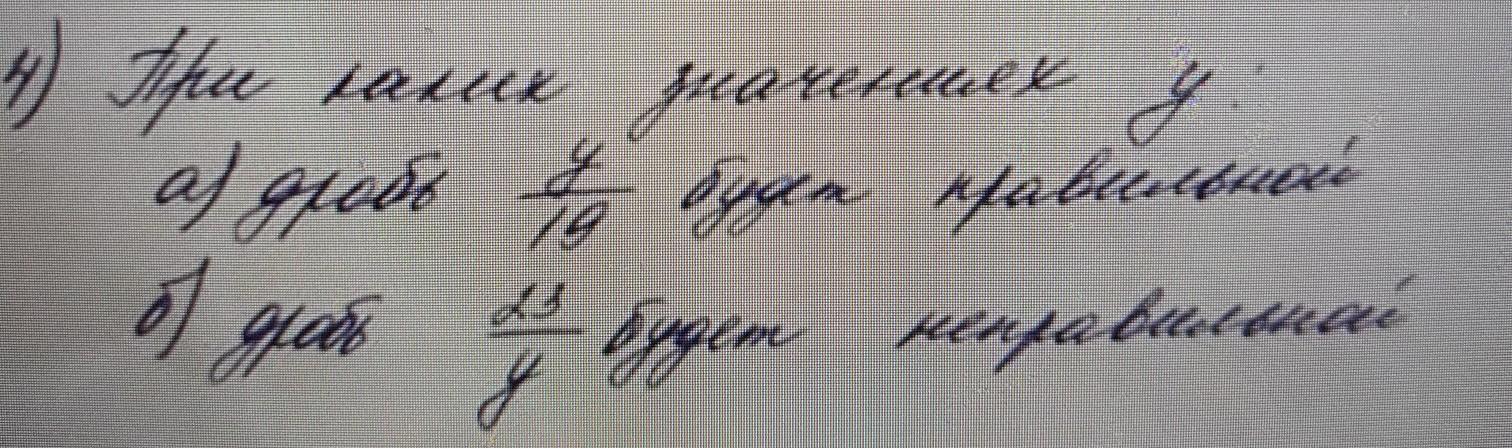 4) При каких значениях y:
а) дробь y/19 будет правильной
б) дробь 23/y будет неправильной